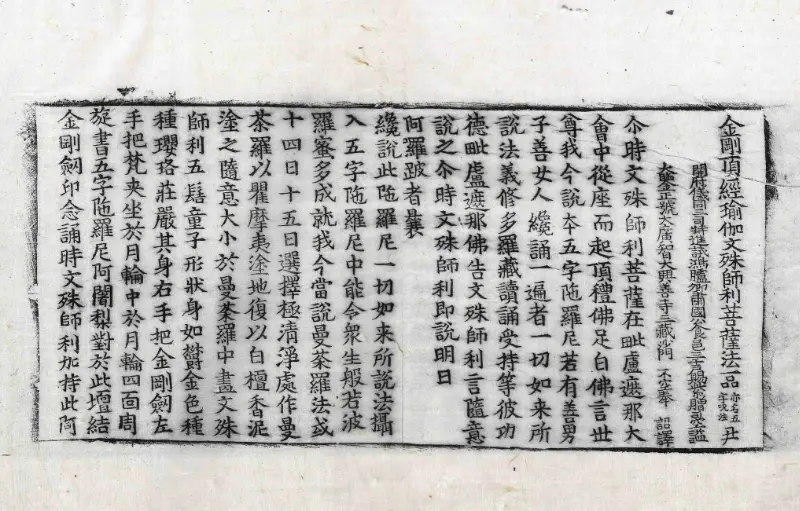 金剛頂經瑜伽文殊師利菩薩法品 亦名五字呪法
開府儀同三司特進試鴻臚卿肅國公食邑三千戶賜紫贈司空謚
大鑒正號大廣智大興善寺三藏沙門 不空奉 詔譯
尒時文殊師利菩薩在毗盧遮那大
會中從座而起頂禮佛足白佛言世
尊我今說本五字陁羅尼若有善男
子善女人纔誦一遍者一切如來所
說法義修多羅藏讀誦受持等彼功
德毗盧遮那佛告文殊師利言隨意
說之尒時文殊師利即說明曰
阿羅跛者曩
纔說此陁羅尼一切如來所說法攝
入五字陁羅尼中能令衆生般若波
羅蜜多成就我今當說曼荼羅法或
十四日十五日選擇極清淨處作曼
荼羅以瞿摩夷塗地復以白檀香泥
塗之隨意大小扵曼荼羅中畫文殊
師利五髻童子形狀身如欝金色種
種瓔珞莊嚴其身右手把金剛劒左
手把梵夾坐扵月輪中扵月輪四面周
旋書五字陁羅尼阿闍梨對扵此壇結
金剛劒印念誦時文殊師利加持此阿